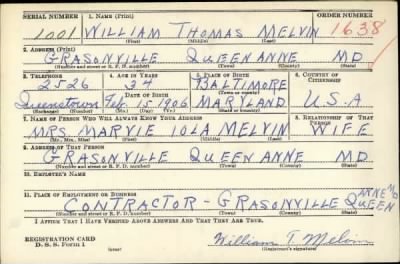 SERIAL NUMBER 1. NAME (Print) ORDER NUMBER
1001 WILLIAM THOMAS MELVIN 1638
(First) (Middle) (Last)
2. ADDRESS (Print)
GRASONVILLE QUEEN ANNE MD
(Number and street or R. F. D. number) (Town) (County) (State)
3. TELEPHONE 4. AGE IN YEARS 5. PLACE OF BIRTH 6. COUNTRY OF CITIZENSHIP
2526 34 BALTIMORE
DATE OF BIRTH (Town or county)
Queenstown Feb. 15 1906 MARYLAND U.S.A
(Exchange) (Number) (Mo.) (Day) (Yr.) (State or country)
7. NAME OF PERSON WHO WILL ALWAYS KNOW YOUR ADDRESS 8. RELATIONSHIP OF THAT PERSON
MRS. MARVIE IOLA MELVIN WIFE
(Mr., Mrs., Miss) (First) (Middle) (Last)
9. ADDRESS OF THAT PERSON
GRASONVILLE QUEEN ANNE MD
(Number and street or R. F. D. number) (Town) (County) (State)
10. EMPLOYER'S NAME
11. PLACE OF EMPLOYMENT OR BUSINESS
CONTRACTOR - GRASONVILLE QUEEN ANNE MD
(Number and street or R. F. D. number) (Town) (County) (State)
I AFFIRM THAT I HAVE VERIFIED ABOVE ANSWERS AND THAT THEY ARE TRUE.
REGISTRATION CARD
D. S. S. Form 1 (over) William T. Melvin
(Registrant's signature)